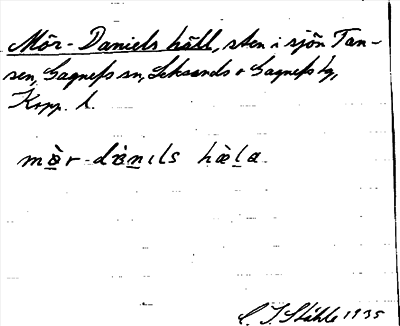 Mör-Daniels häll, sten i sjön Tan-
sen, Gagnefs sn, Leksands o Gagnefs tg,
Kopp. l.
mö̀r-dànıls hæ̀la.
C. I. Ståhle 1935